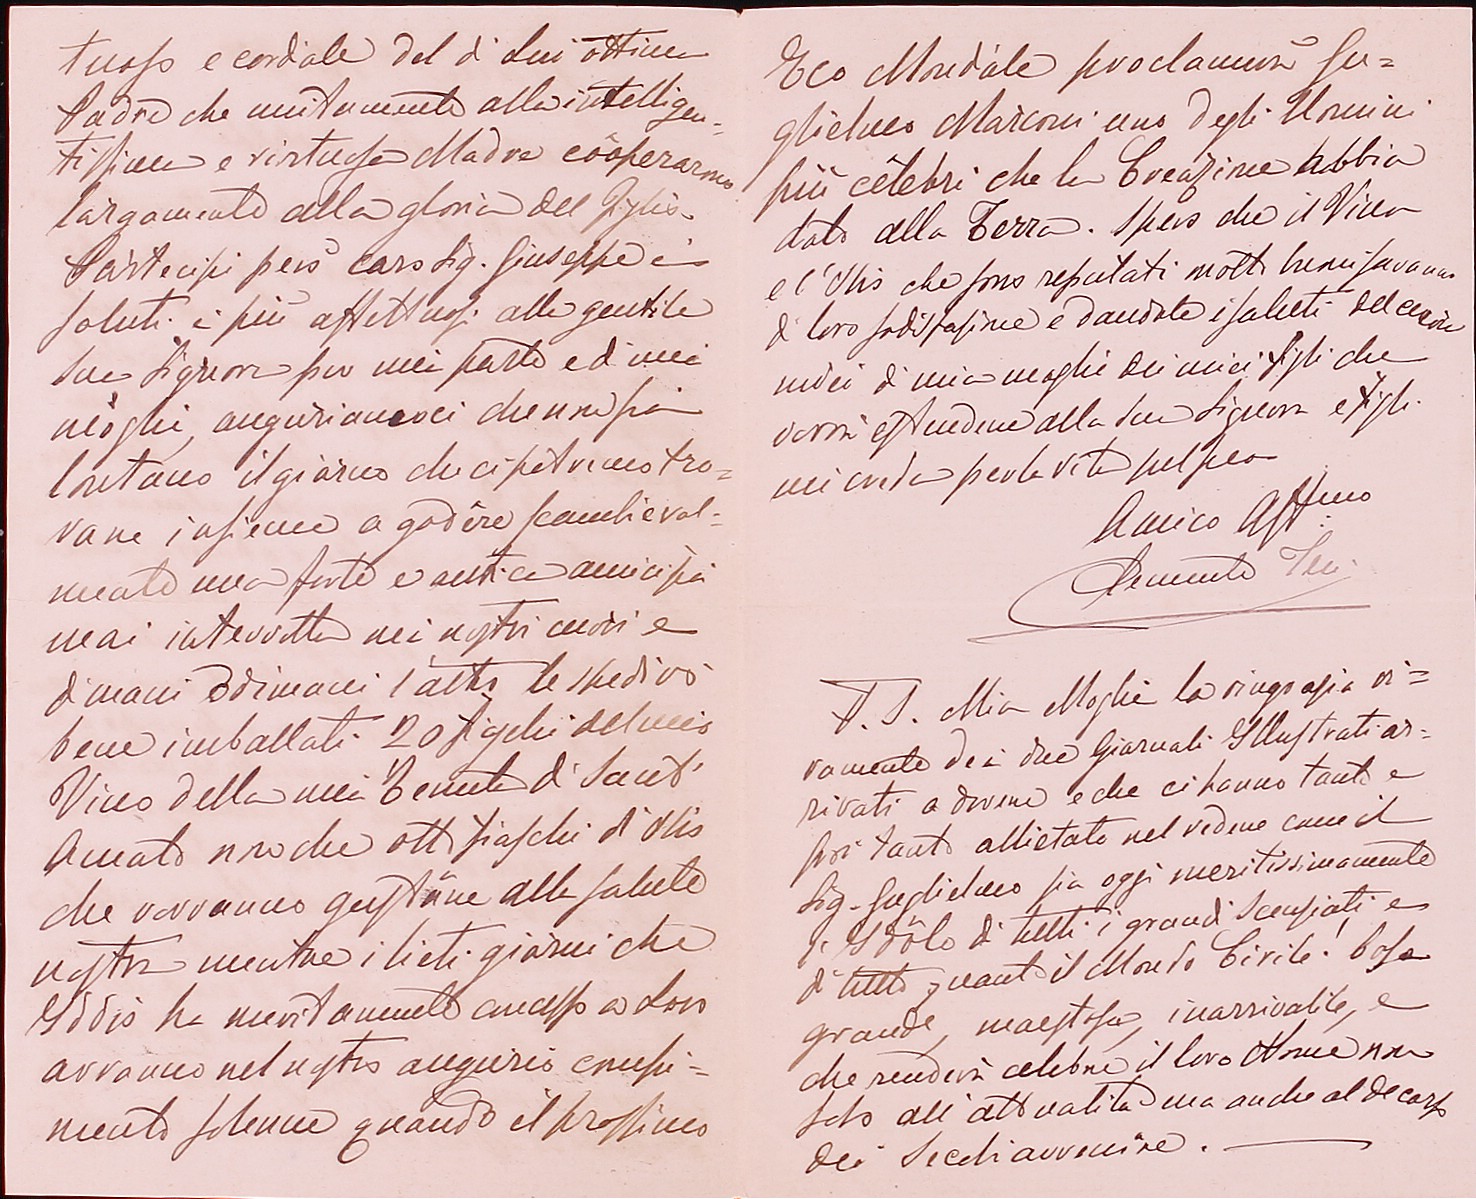 tuoso e cordiale del di Lui ottimo
Padre che unitamente alla intelligen=
tissima e virtuosa Madre coóperarono
largamente alla gloria del Figlio.
Partecipi però caro Sig. Giuseppe i
saluti i più affettuosi alla gentile
sua Signora per mia parte e di mia
moglie, augurianoci che non sia
lontano il giorno che ci potremo tro=
vare insieme a godere scambieval=
mente una forte e antica amicizia
mai interrotta nei nostri cuori e
dimani o dimani l'altro le spedirò
bene imballati 20 fiaschi del mio
Vino della mia Tenuta di Sant'
Amato non che otto fiaschi di Olio
che vorranno gustare alla salute
nostra mentre i lieti giorni che
Iddio ha meritamente concesso a Loro
avranno nel nostro augurio compi=
mento solenne quando il prossimo
Eco Mondiale proclamerà Gu=
glielmo Marconi uno degli Uomini
più celebri che la Creazione abbia
dato alla Terra. Spero che il Vino
e l'Olio che sono reputati molto buoni saranno
di loro sodisfasione e dandole i saluti del cuore
miei di mia moglie dei miei figli che
vorrà estendere alla sua Signora e figli
mi creda per la vita pel suo
Amico Affmo
Clemente
P. S. Mia Moglie la ringrazia vi=
vamente dei due Giornali Illustrati ar=
rivati a dovere e che ci hanno tanto e
poi tanto allietato nel vedere come il
Sig. Guglielmo sia oggi meritissimamente
l'Idolo di tutti i grandi Scensiati e
di tutto quanto il Mondo Civile! Cosa
grande, maestosa, inarrivabile, e
che renderà celebre il loro Nome non
solo all'attualità ma anche al decorso
dei Secoli avvenire.